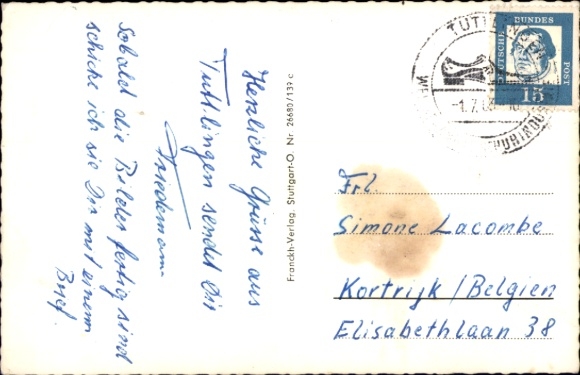 Herzliche Grüsse aus
Tuttlingen sendet Dir
Friedemann
Sobald die Bilder fertig sind
schicke ich sie Dir mit einem
Brief.
Franckh-Verlag, Stuttgart-O. Nr 26680/139 c
DEUTSCHE BUNDES POST
15
TUTTLINGEN
1.7.
Frl.
Simone Lacombe
Kortrijk/Belgien
Elisabethlaan 38